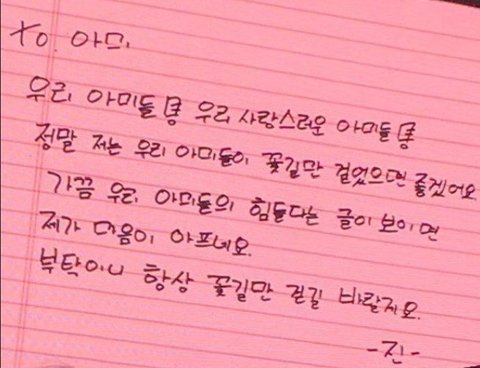 To. 아미
우리 아미들 우리 사랑스러운 아미들
정말 저는 우리 아미들이 꽃길만 걸었으면 좋겠어요
가끔 우리 아미들의 힘들다는 글이 보이면
제가 마음이 아프네요.
부탁이니 항상 꽃길만 걷길 바랄게요.
-진-